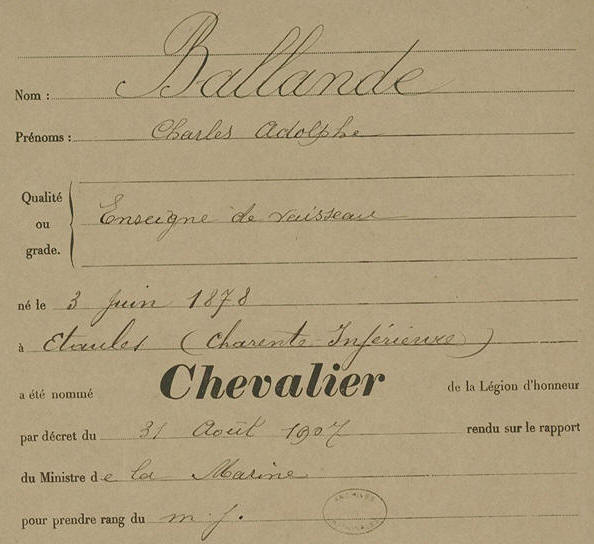 Nom : Ballande
Prénoms : Charles Adolphe
Qualité
ou
grade.
Enseigne de vaisseau
né le 3 Juin 1878
à Etaules (Charente Inférieure)
a été nommé Chevalier de la Légion d'honneur
par décret du 31 Août 1907 rendu sur le rapport
du Ministre de la Marine
pour prendre rang du m. j.
ARCHIVES
NATIONALES